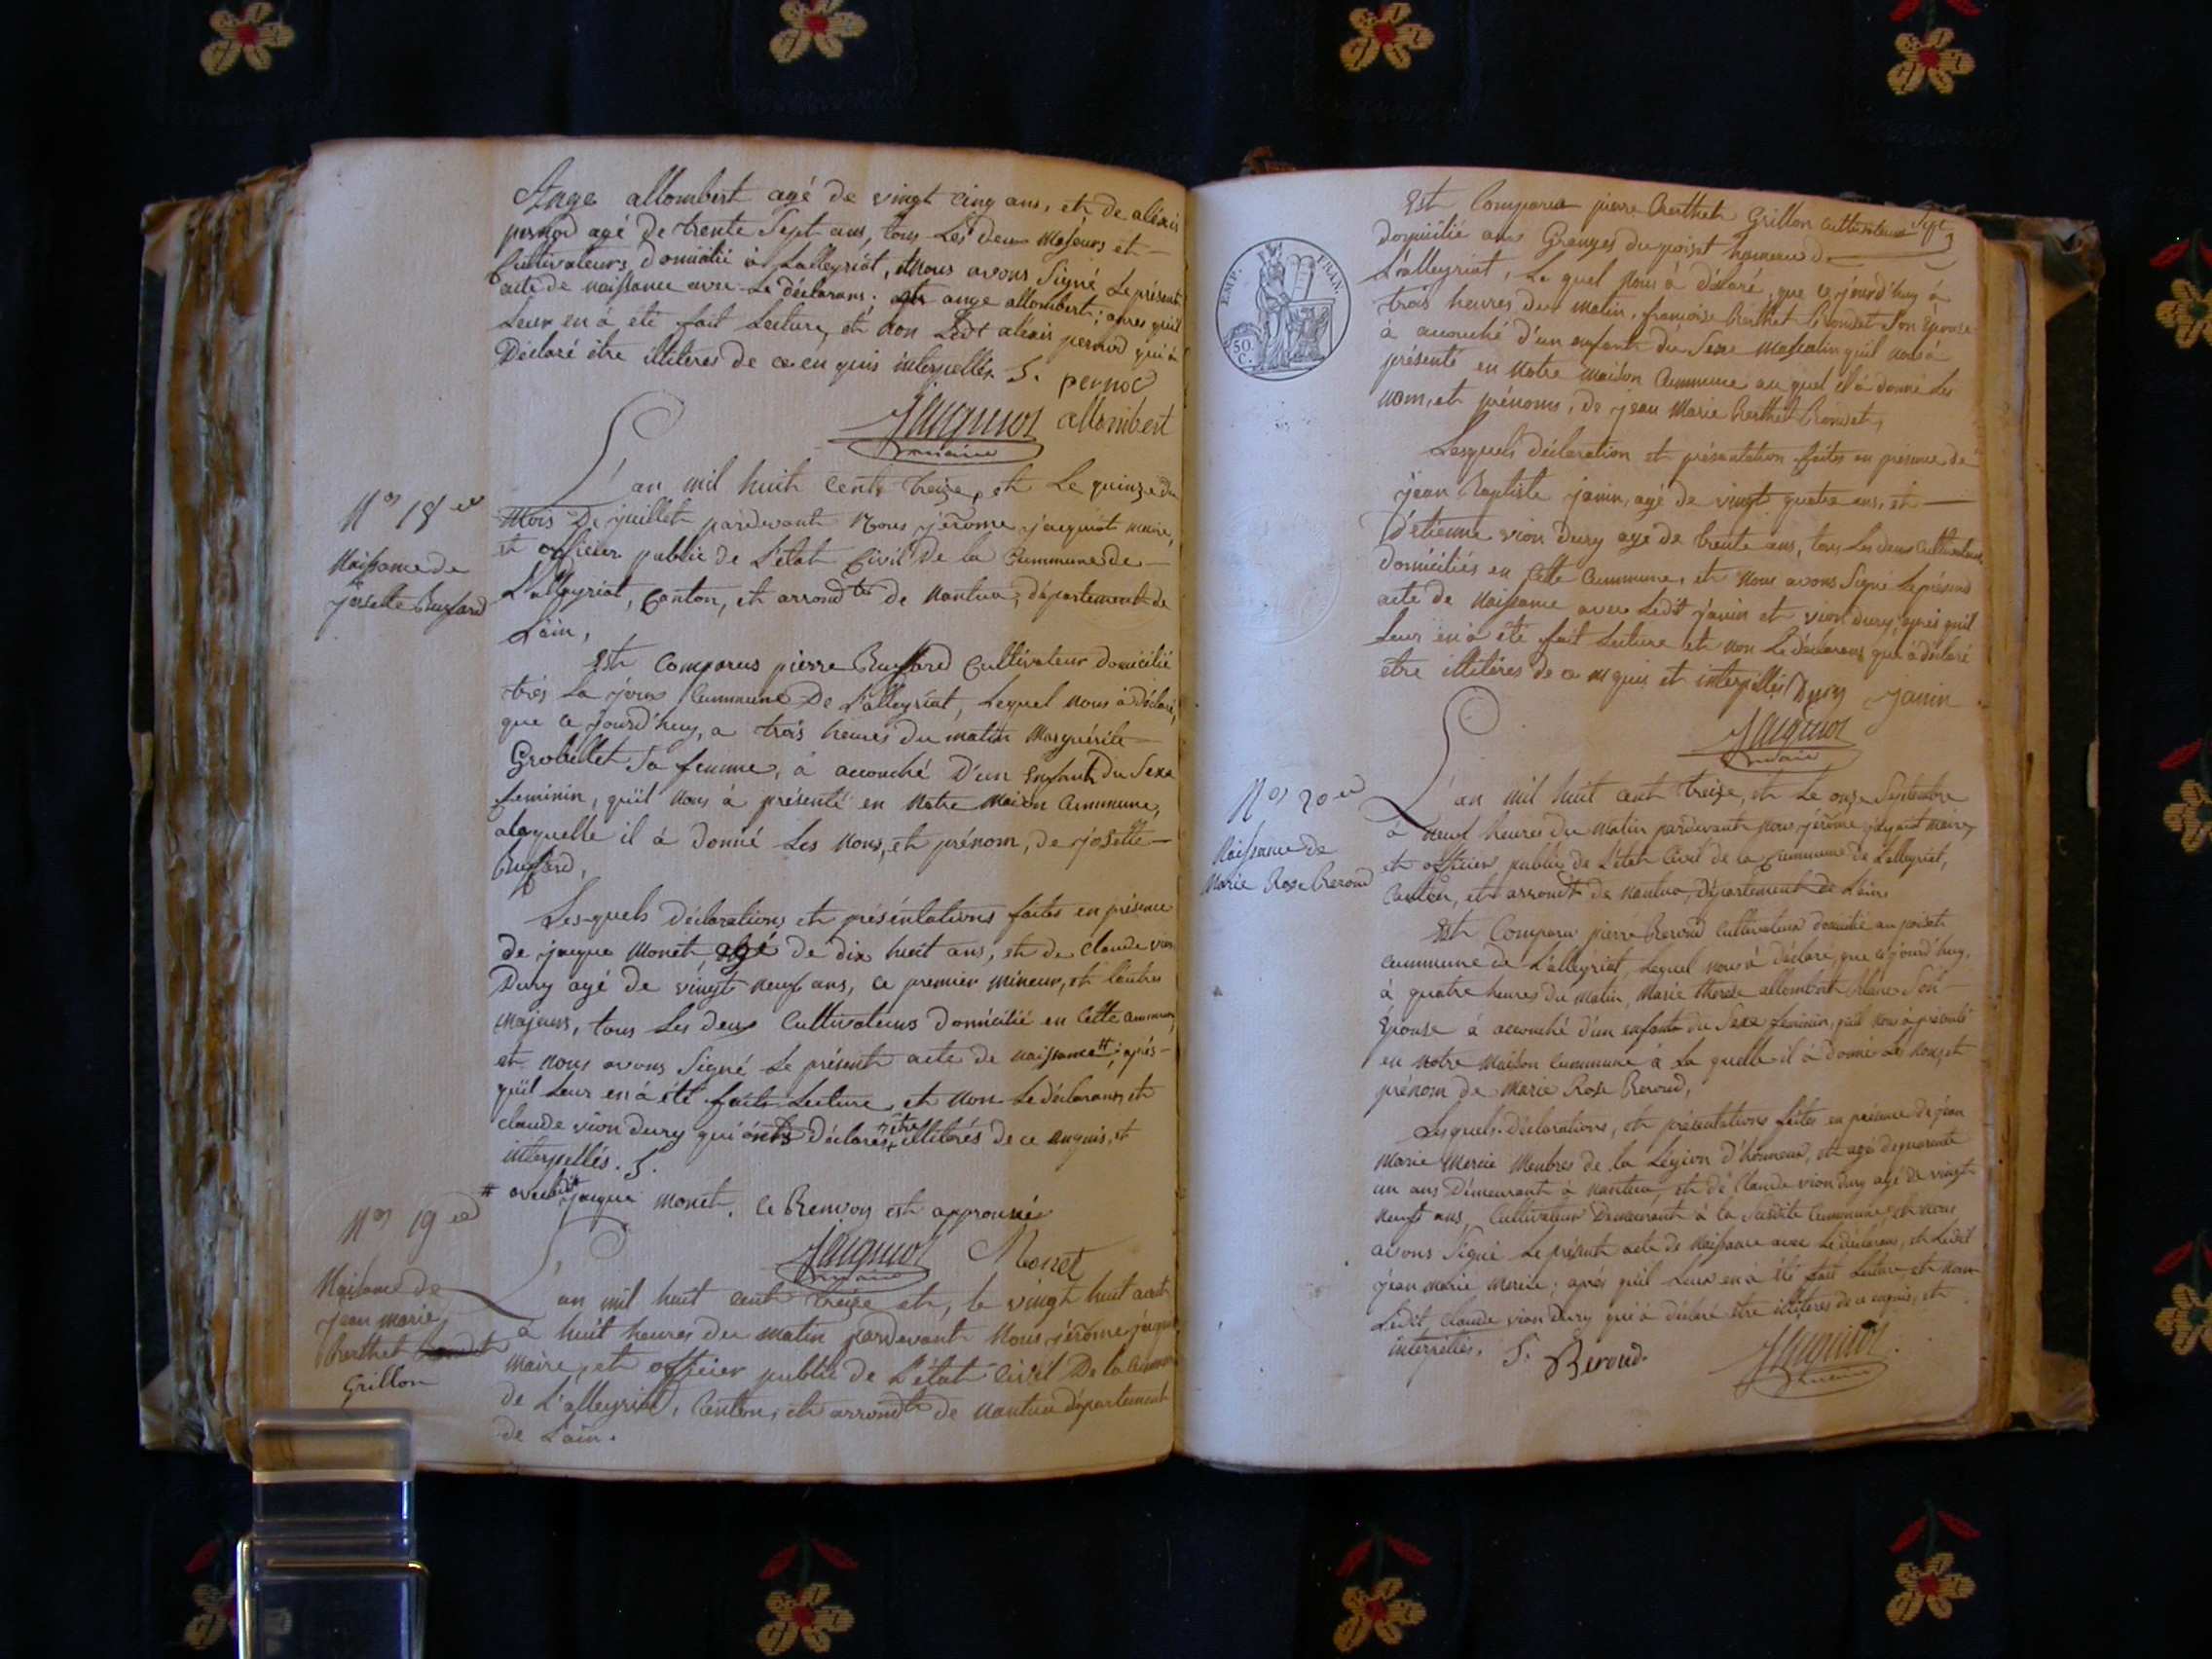 Ange allombert agé de vingt cinq ans, et de aléxis
pernod agé de trente Sept ans, tous Les deux Majeurs et
Cultivateurs domicilié à Lalleyriat, et nous avons Signé Le présent
acte de naissance avec Le déclarans; ange allombert; apres quil
Leur en à eté fait Lecture, et non Ledt aléxis pernod qui à
Déclaré être illiteres de ce en quis interpellés. S. pernod
Jacquiot allombert
maire
N° 18
Naissance de
Josette Buffard
L'an mil huit cent treize, et Le quinze du
Mois De juillet pardevant Nous jérome jacquiot maire,
et officier public de L'état Civil De la Commune de
L'alleyriat, Canton, et arrondt de Nantua, département de
L'ain,
Est Comparus pierre Buffard Cultivateur domicilié
Commune De L'alleyriat, Lequel nous à déclaré,
que ce jourd'huy, a trois heures du matin Marguérite
Grobellet Sa femme, à accouché D'un Enfant Du Sexe
feminin, qu'il nous à présenté en Notre maison Commune,
alaquelle il à donné Les Nons, et prénom, de josette
Buffard,
Les-quels déclarations et présentations faites en présence
de jacque Monet agé de dix huit ans, et de claude vion
Dury agé de vingt neuf ans, ce premier mineur, et l'autre
majeurs, tous Les deux Cultivateurs domicilié en Cette Commune,
et nous avons Signé Le présent acte de naissance #; après
qu'il Leur en à été fait Lecture, et non Le déclarans et
claude vion dury qui ont Déclarés être illiterés de ce enquis, et
interpellés. S.
# avec jacque monet. Ce Renvoy est approuvé
Jacquiot Monet
maire
N° 19
Naissance de
jean marie
Berthet
Grillon
L'an mil huit cent treize et, le vingt huit aout
à huit heures du matin pardevant Nous, jérôme jacquiot
maire, et officier public de L'état Civil De la Commune
de L'alleyriat, Canton, et arrondt de nantua département
de L'ain.
Sept
Est Comparu pierre Berthet Grillon Cultivateur
domicilié aux Granges du poizat hameau de
L'alleyriat, Le quel Nous à déclaré, que ce jourd'huy à
trois heures du matin, françoise Berthet Bondet Son Epouse
à accouché d'un enfant du Sexe masculin qu'il nous à
présenté en Notre maison Commune au quel il à donné Les
nom, et prénoms, de jean Marie Berthet Bondet,
EMP. FRAN.
50 C.
Lesquels déclaration et présentation faites en présence de
jean Baptiste janin, agé de vingt quatre ans, et
D'etienne vion Dury agé de trente ans, tous Les deux Cultivateurs
domiciliés en Cette Commune, et Nous avons Signé Le présent
acte de Naissance avec Ledit janin et vion dury, après qu'il
Leur en à été fait Lecture et non Le déclarans qui à déclaré
être illitéres de ce enquis et interpellés Dury janin
Jacquiot
maire
N° 20
Naissance de
Marie Rose Beroud
L'an mil huit cent treize, et Le onze Septembre
à neuf heures du matin pardevant nous jérôme jacquiot maire
et officier public de L'état Civil de la Commune de Lalleyriat,
Canton, et arrondt de nantua, département de L'ain,
Est Comparu pierre Beroud Cultivateur domicilié au poizat
commune de L'alleyriat, Lequel nous à déclaré, que ce jourd'huy,
à quatre heures du matin, Marie therese allombert blanc Son
Epouse à accouché d'un enfant du Sexe feminin, qu'il nous à présenté
en notre maison Commune à La quelle il à donné Les nom, et
prénom de Marie Rose Beroud,
Lesquels déclarations, et présentations faites en présence de jean
marie Mercie Membres de la Légion d'honneur, et agé de quarante
un ans Démeurant à Nantua, et de Claude vion dury agé de vingt
neuf ans, Cultivateur Demeurant à la Susdite Commune, et nous
avons Signé Le présent acte de Naissance avec Le déclarans, et Ledit
jean marie mercie; après qu'il Leur en à été fait Lecture, et non
Ledit, claude vion dury qui à déclaré être illiteres de ce enquis, et
interpellés. S. Beroud. Jacquiot
maire